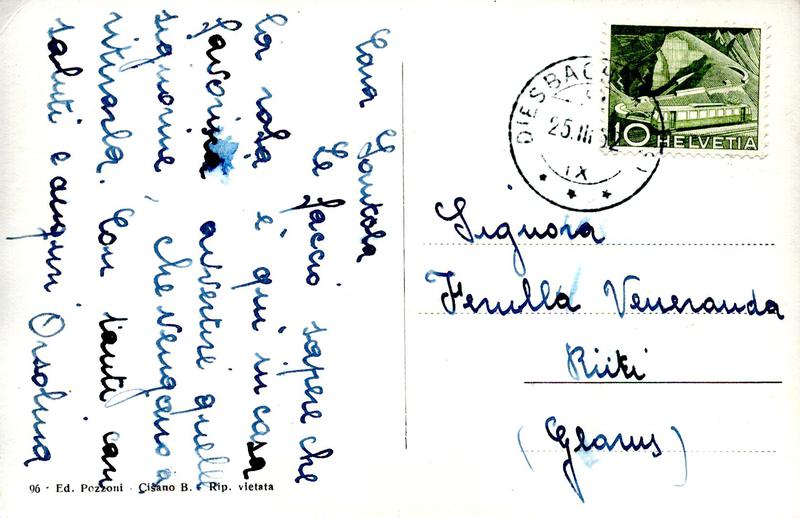 Cara
Le faccio sapere che
la roba è qui in casa
favorisca avvertire quelle
signorine, che vengano a
ritirarla. Con tanti cari
saluti e auguri Orsolina
96 - Ed. Pozzoni - Cisano B. - Rip. vietata
DIESBACH
25.III.52
IX
10 HELVETIA
Signora
Ferulla Veneranda
Rüti
(Glarus)